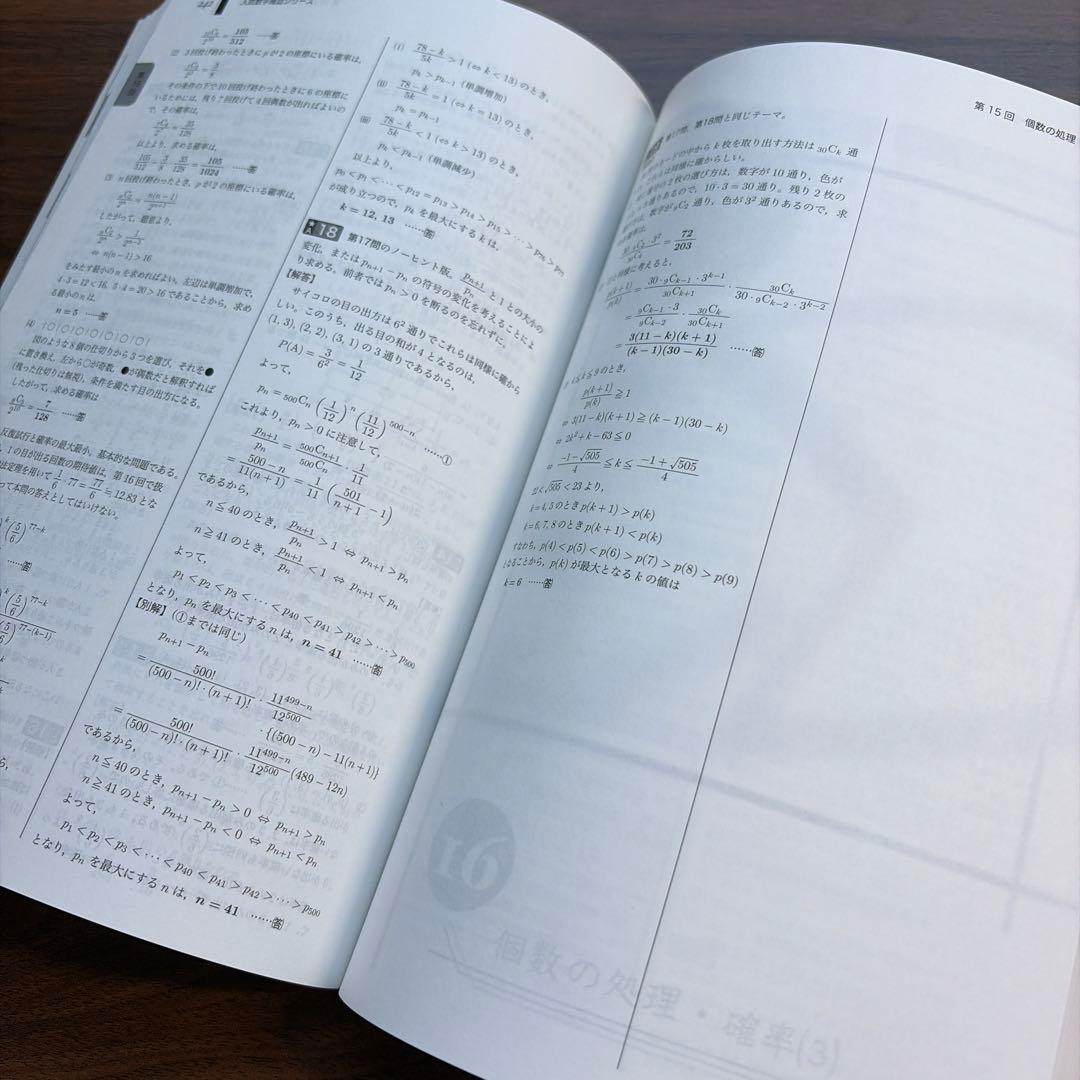 242 入試数学確認シリーズ
₁₀C₄/2¹⁰ = 105/512 ……答
(2) 3回投げ終わったときにpが2の座標にいる確率は,
₃C₂/2³ = 3/8
その条件の下で10回投げ終わったときに6の座標に
いるためには, 残り7回投げて4回偶数が出ればよいの
で, その確率は,
₇C₄/2⁷ = 35/128
以上より, 求める確率は,
(3) n回投げ終わったとき, pが2の座標にいる確率は,
ₙC₂/2ⁿ = n(n−1)/2ⁿ⁺¹
したがって, 題意より,
⇔ n(n−1)>16
をみたす最小のnを求めればよい. 左辺は単調増加で,
4·3=12<16, 5·4=20>16であることから, 求め
る最小のnは,
n=5 ……答
図のような8個の仕切りから3つを選び, それを●
に置き換え, 左から○が奇数, ●が偶数だと解釈すれば
(残った仕切りは無視), 条件を満たす目の出方になる.
したがって, 求める確率は
₈C₃/2¹⁰ = 7/128 ……答
反復試行と確率の最大最小. 基本的な問題である.
1の目が出る回数の期待値は, 第16回で扱
法定理を用いて 1/6·77=77/6≒12.83とな
って本問の答えとしてはいけない.
(i) (78−k)/5k > 1 (⇔ k<13)のとき,
pₖ > pₖ₋₁ (単調増加)
(ii) (78−k)/5k = 1 (⇔ k=13)のとき,
pₖ = pₖ₋₁
(iii) (78−k)/5k < 1 (⇔ k>13)のとき,
pₖ < pₖ₋₁ (単調減少)
以上より,
p₀<p₁<···<p₁₂=p₁₃>p₁₄>p₁₅>···>p₇₆>p₇₇
が成り立つので, pₖを最大にするkは,
k=12, 13 ……答
18 第17問のノーヒント版. pₙ₊₁/pₙ と1との大小の
変化, またはpₙ₊₁−pₙの符号の変化を考えることによ
り求める. 前者ではpₙ>0を断るのを忘れずに.
【解答】
サイコロの目の出方は6²通りでこれらは同様に確から
しい. このうち, 出る目の和が4となるのは,
(1, 3), (2, 2), (3, 1)の3通りであるから,
P(A) = 3/6² = 1/12
よって,
pₙ = ₅₀₀Cₙ (1/12)ⁿ (11/12)⁵⁰⁰⁻ⁿ ……①
これより, pₙ>0に注意して,
pₙ₊₁/pₙ = ₅₀₀Cₙ₊₁/₅₀₀Cₙ · 1/11
= (500−n)/11(n+1) = 1/11 (501/(n+1) −1)
であるから,
n≦40のとき, pₙ₊₁/pₙ >1 ⇔ pₙ₊₁>pₙ
n≧41のとき, pₙ₊₁/pₙ <1 ⇔ pₙ₊₁<pₙ
よって,
p₁<p₂<p₃<···<p₄₀<p₄₁>p₄₂>···>p₅₀₀
となり, pₙを最大にするnは, n=41 ……答
【別解】(①までは同じ)
pₙ₊₁−pₙ
= 500!/((500−n)!·(n+1)!) · 11⁴⁹⁹⁻ⁿ/12⁵⁰⁰
·{(500−n)−11(n+1)}
= 500!/((500−n)!·(n+1)!) · 11⁴⁹⁹⁻ⁿ/12⁵⁰⁰ (489−12n)
であるから,
n≦40のとき, pₙ₊₁−pₙ>0 ⇔ pₙ₊₁>pₙ
n≧41のとき, pₙ₊₁−pₙ<0 ⇔ pₙ₊₁<pₙ
よって,
p₁<p₂<p₃<···<p₄₀<p₄₁>p₄₂>···>p₅₀₀
となり, pₙを最大にするnは, n=41 ……答
第15回 個数の処理
第17問, 第18問と同じテーマ.
カードの中からk枚を取り出す方法は₃₀Cₖ通
同様に確からしい.
2枚の選び方は, 数字が10通り, 色が
通りあるので, 10·3=30通り. 残り2枚の
数字が₉C₂通り, 色が3²通りあるので, 求
30·₉C₂·3²/₃₀C₄ = 72/203
同様に考えると,
p(k+1)/p(k) = 30·₉Cₖ₋₁·3ᵏ⁻¹/₃₀Cₖ₊₁ · ₃₀Cₖ/(30·₉Cₖ₋₂·3ᵏ⁻²)
= ₉Cₖ₋₁·3/₉Cₖ₋₂ · ₃₀Cₖ/₃₀Cₖ₊₁
= 3(11−k)(k+1)/(k−1)(30−k) ……答
≦k≦9のとき,
p(k+1)/p(k) ≧1
⇔ 3(11−k)(k+1)≧(k−1)(30−k)
⇔ 2k²+k−63≦0
⇔ (−1−√505)/4 ≦k≦ (−1+√505)/4
22<√505<23より,
k=4, 5のときp(k+1)>p(k)
k=6, 7, 8のときp(k+1)<p(k)
すなわち, p(4)<p(5)<p(6)>p(7)>p(8)>p(9)
となることから, p(k)が最大となるkの値は
k=6 ……答
16
個数の処理・確率(3)